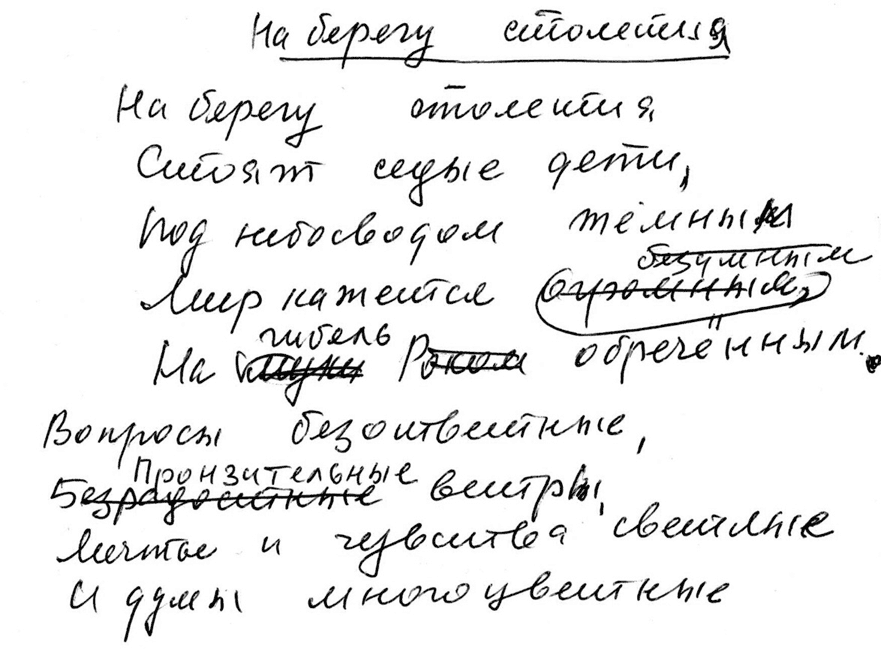 На берегу столетия
На берегу столетия
Стоят седые дети,
Под небосводом тёмным
безумным
Мир кажется огромным,
гибель
На муки Роком обречённым.
Вопросы безответные,
Пронзительные
Безрадостные ветры,
Мечты и чувства светлые
И думы многоцветные